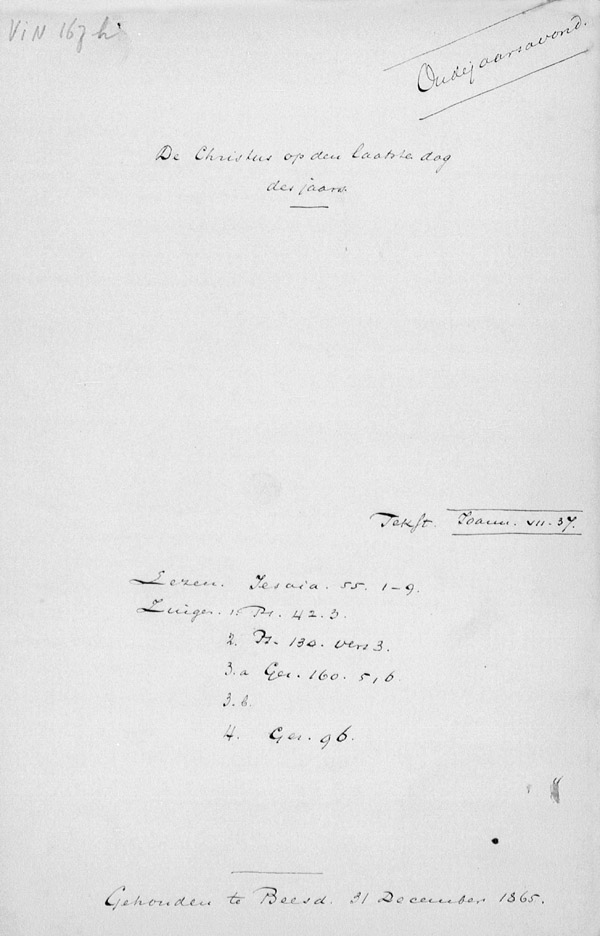 VIN 167 h
Oudejaarsavond.
De Christus op den laatste dag
des jaars
Tekst. Joann. VII. 37.
Lezen. Jesaia. 55. 1-9.
Zingen. 1. Ps. 42. 3.
2. Ps. 130. vers 3.
3.a Gez. 160. 5, 6.
3.b.
4. Gez. 96.
Gehouden te Beesd. 31 December 1865.